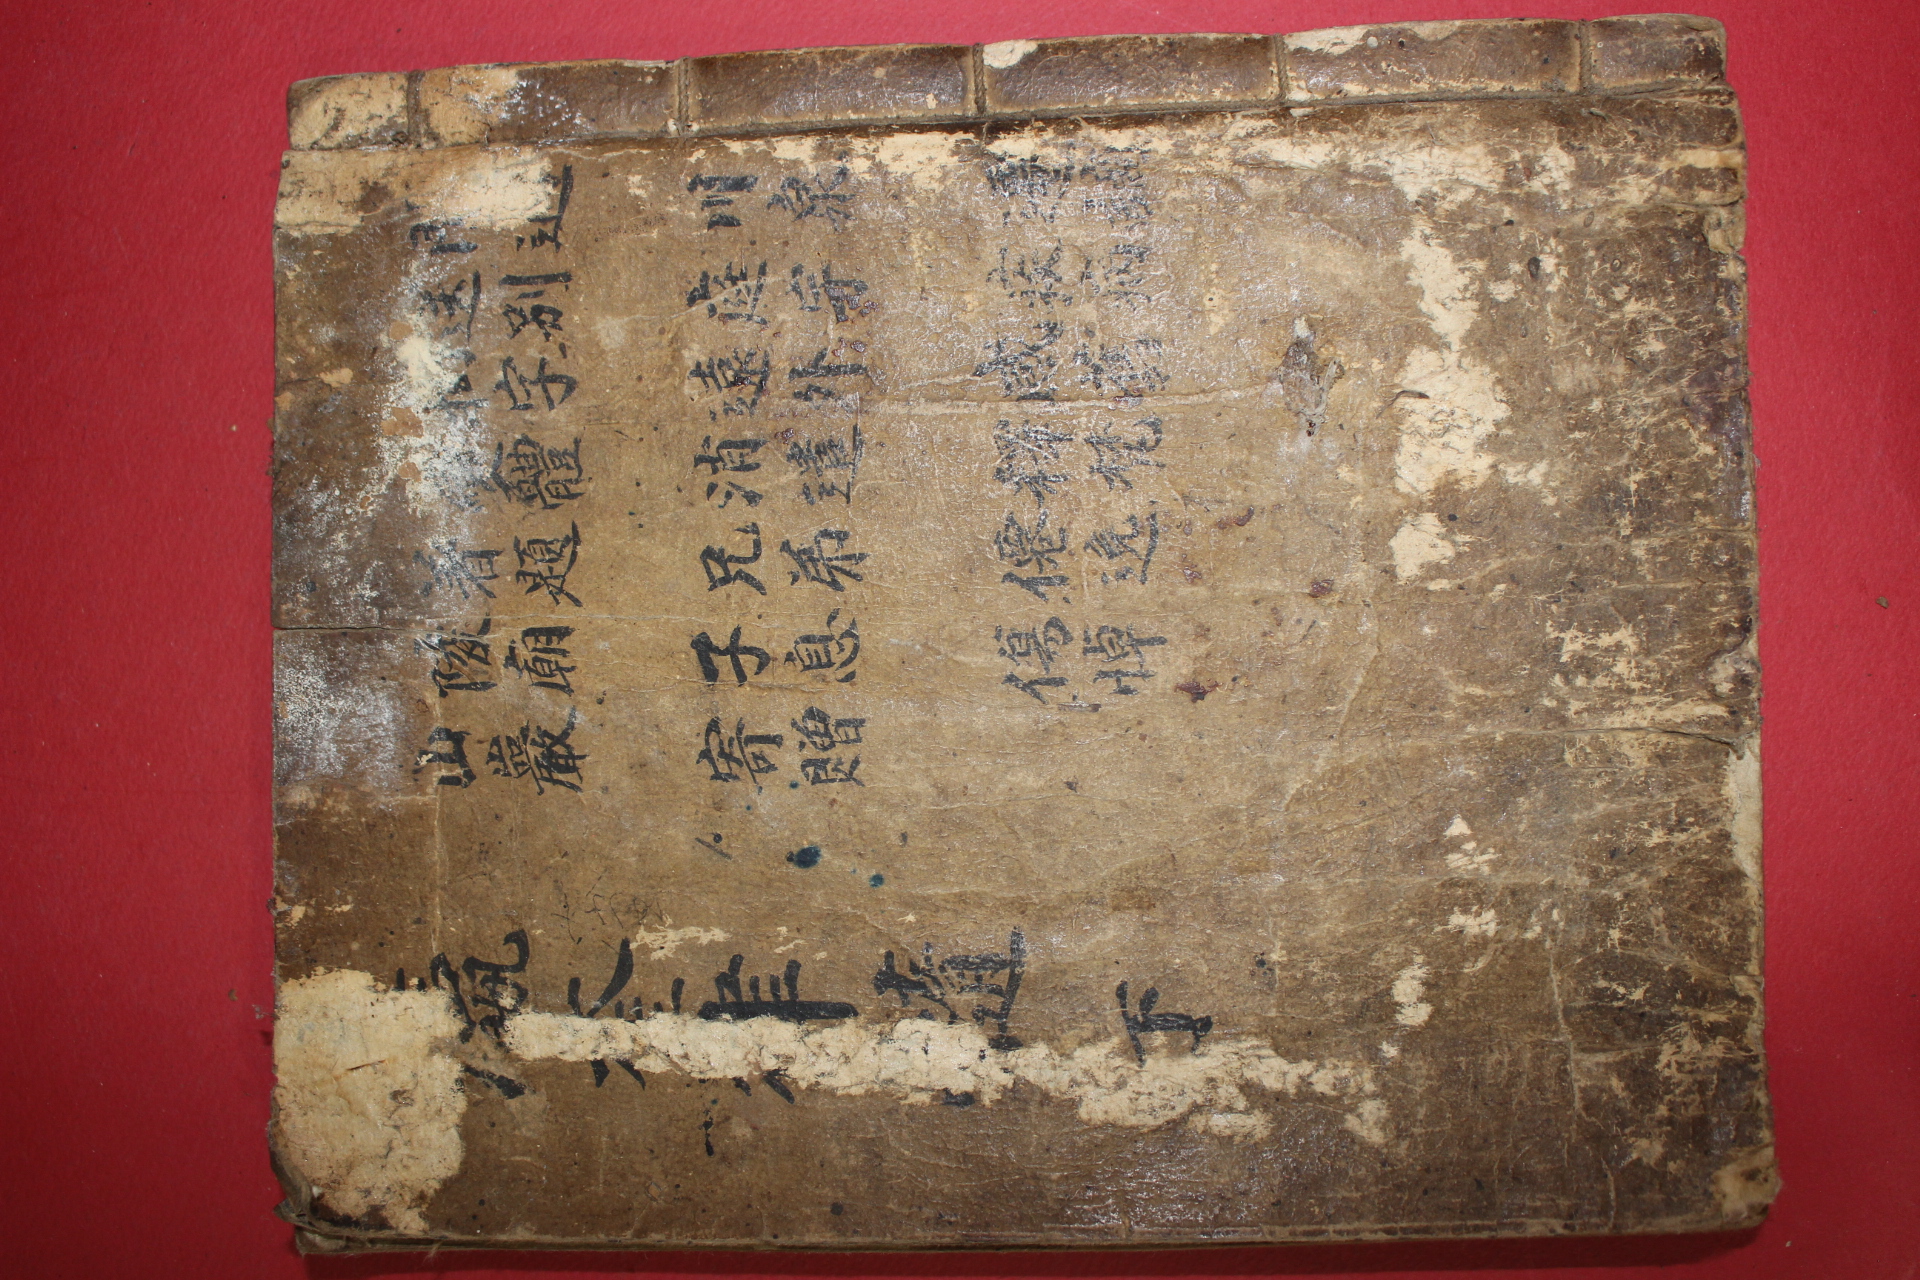 送別
拗字
變體
着題
陵廟
山巖
川泉
庭宇
遠外
消遣
兄弟
子息
寄贈
遷謫
疾病
感舊
釋梵
僊逸
傷悼
瀛奎律髓 下